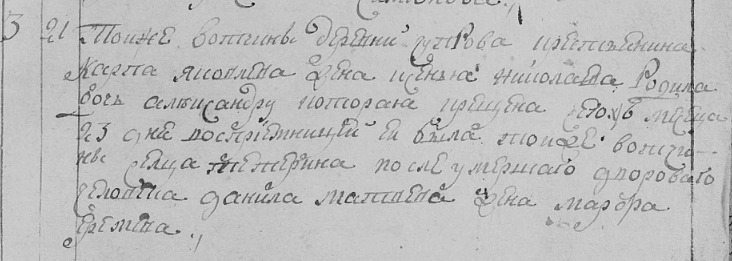 3 21 Тоиже вотчины деревни Сурова крестьянина
Карпа Яковлева жена Ксенья Николаева Родила
дочь Александру которая крещена сегожъ месеца
23 дня восприемницей ея была тоиже вотчи-
ны селца после умершаго дворового
человека Данила Матвеева жена Марфа
Еремеева.,